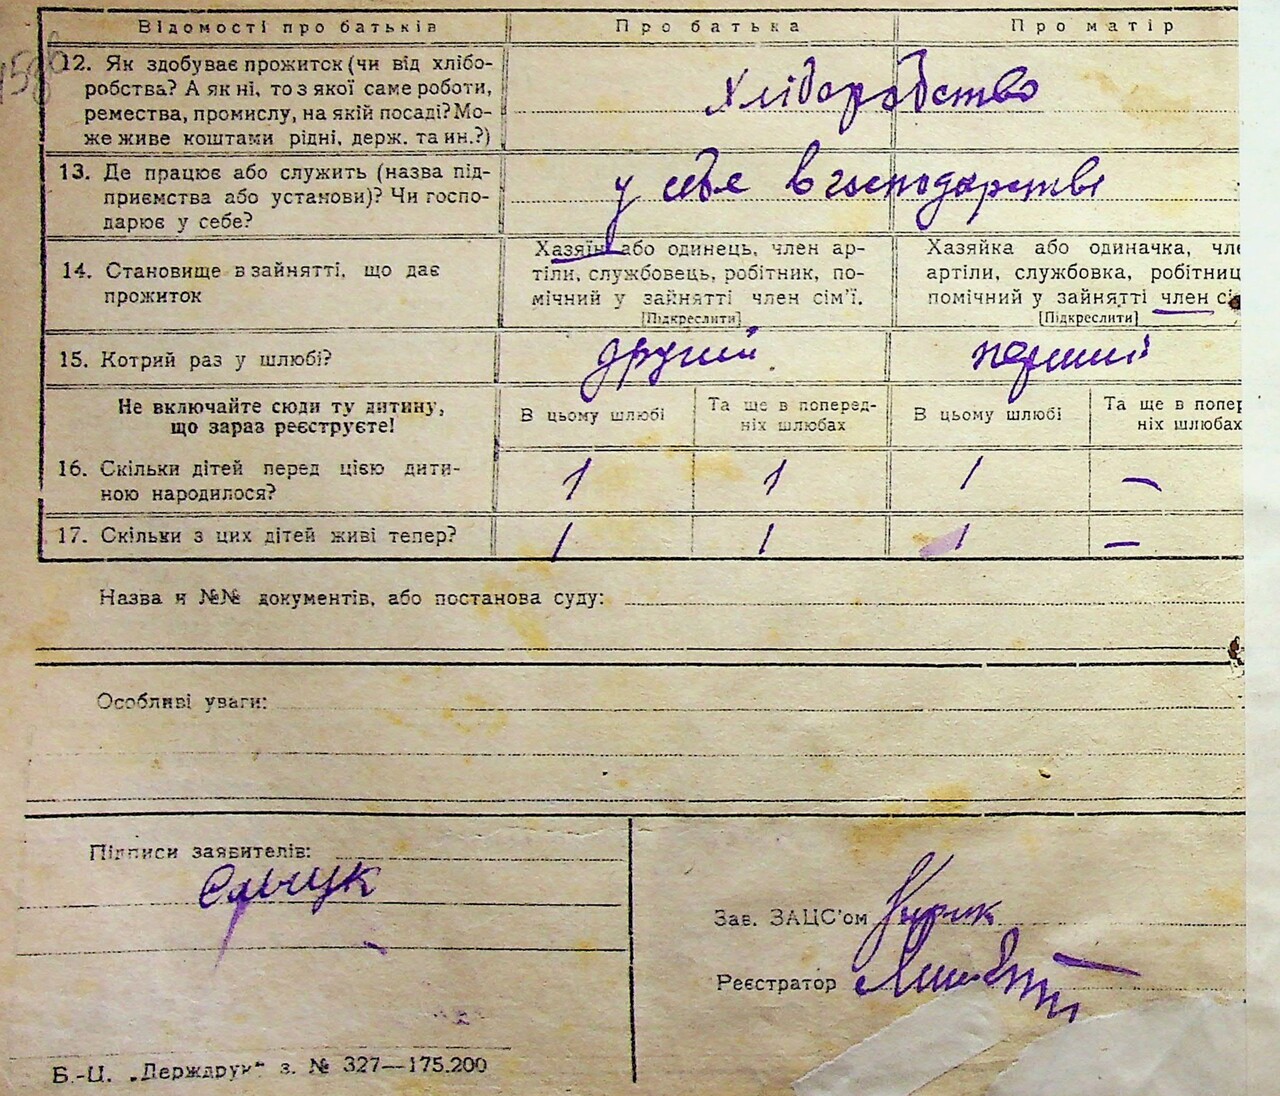 Відомості про батьків
Про батька
Про матір
12. Як здобуває прожиток (чи від хлібо-
робства? А як ні, то з якої саме роботи,
ремества, промислу, на якій посаді? Мо-
же живе коштами рідні, держ. та ин.?)
Хліборобство
13. Де працює або служить (назва під-
приємства або установи)? Чи госпо-
дарює у себе?
у себе в господарстві
14. Становище в зайнятті, що дає
прожиток
Хазяїн або одинець, член ар-
тіли, службовець, робітник, по-
мічний у зайнятті член сім'ї.
[Підкреслити]
Хазяйка або одиначка, чле
артіли, службовка, робітниц
помічний у зайнятті член сі
[Підкреслити]
15. Котрий раз у шлюбі?
другий
перший
Не включайте сюди ту дитину,
що зараз реєструєте!
В цьому шлюбі
Та ще в поперед-
ніх шлюбах
В цьому шлюбі
Та ще в попер
ніх шлюбах
16. Скільки дітей перед цією дити-
ною народилося?
1
1
1
—
17. Скільки з цих дітей живі тепер?
1
1
1
—
Назва й №№ документів, або постанова суду:
Особливі уваги:
Підписи заявителів:
Зав. ЗАЦС'ом
Реєстратор
Б.-Ц. „Держдрук" з. № 327—175.200